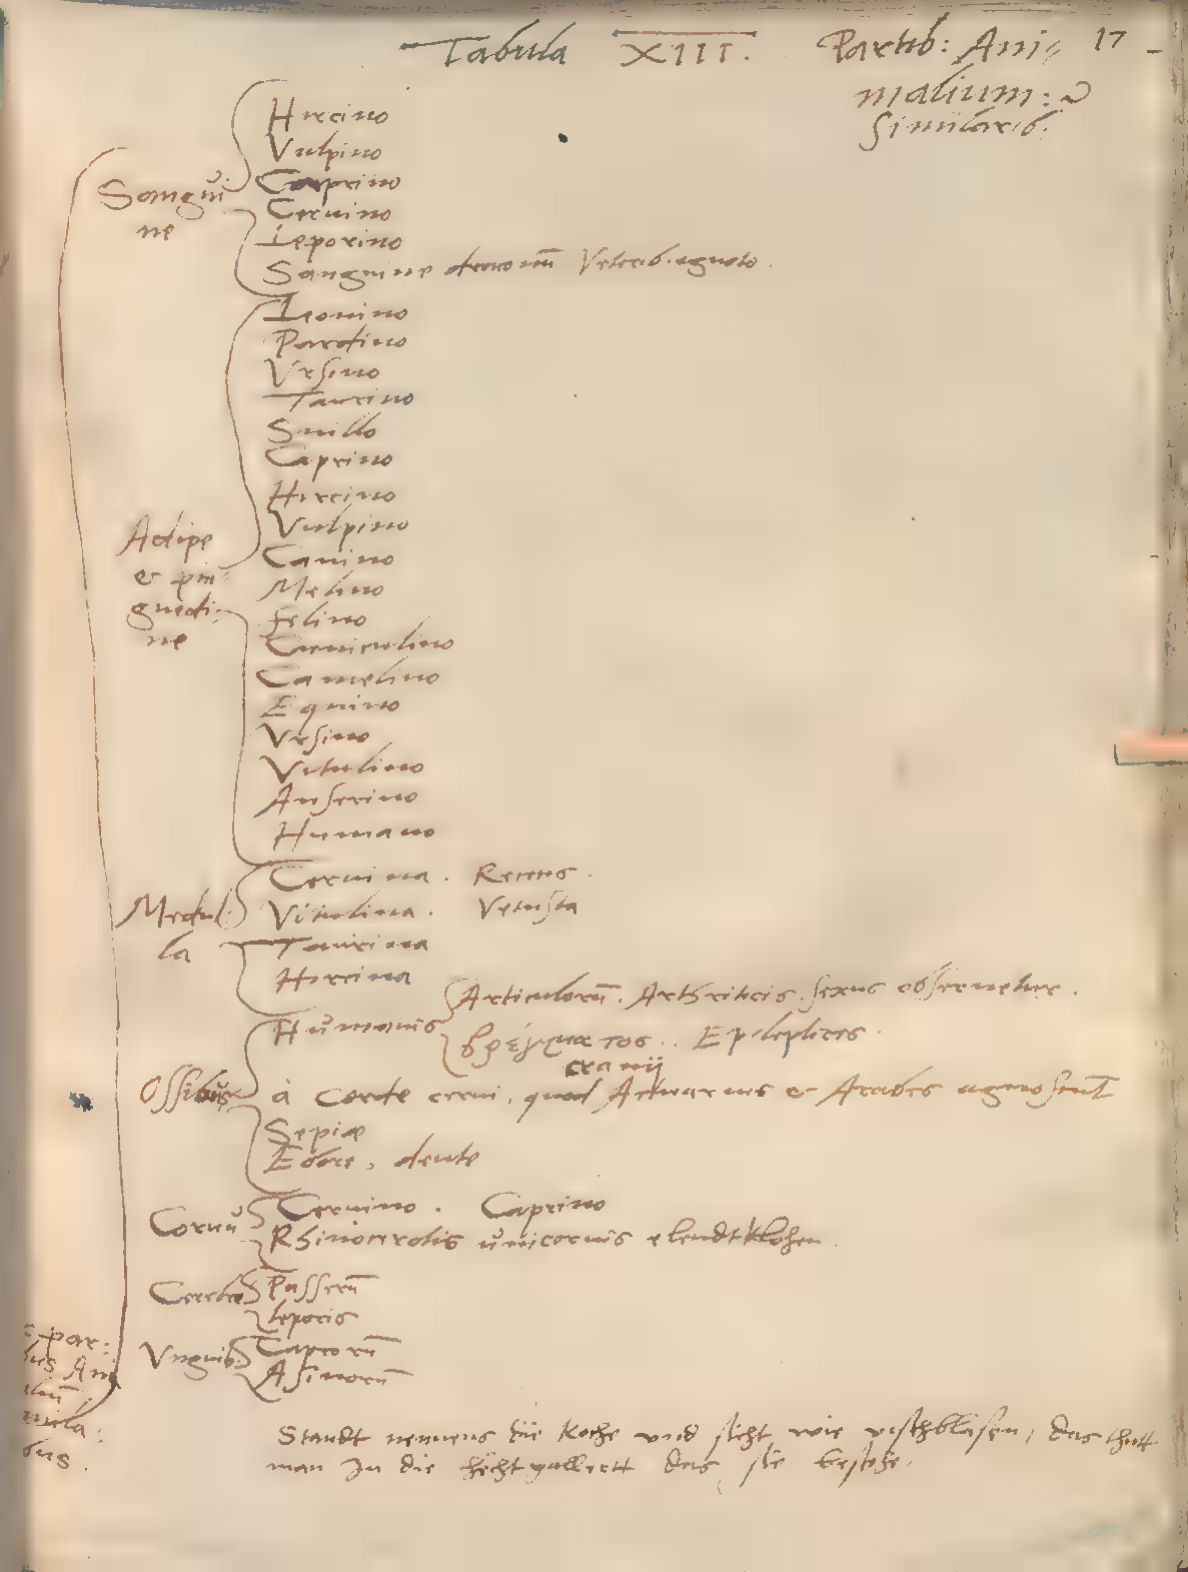 Tabula XIII. Partib: Ani= 17
malium:
Similarib.
Sangui
ne
Hircino
Vulpino
Caprino
Ceruino
Leporino
Sanguine draconū Veterib. ignoto.
Adipe
& pin=
guedi=
ne
Leonino
Pardino
Vrsino
Taurino
Suillo
Caprino
Hircino
Vulpino
Canino
Melino
felino
Cuniculino
Camelino
Equino
Vrsino
Vitulino
Anserino
Humano
Medul
la
Ceruina. Recens.
Vitulina. Vetusta
Taurina
Hircina
Ossibus
Humanis
Articulorū. Arthriticis. sexus obseruetur.
βρέγματος. Epilepticis.
cranij
à Corde cerui, quod Actuarius & Arabes agnoscunt
Sepiæ
Ebore, dente
Cornu
Ceruino. Caprino
Rhinocerotis unicornis elendtklohen.
Cerebro
Passerū
leporis
Vnguib:
Caprorū
Asinorū
par:
bus Ani
bus.
Standt nennens die Koche vnd sicht wie vischblasen, das thutt
man In die hechtgallertt das sie bestehe.